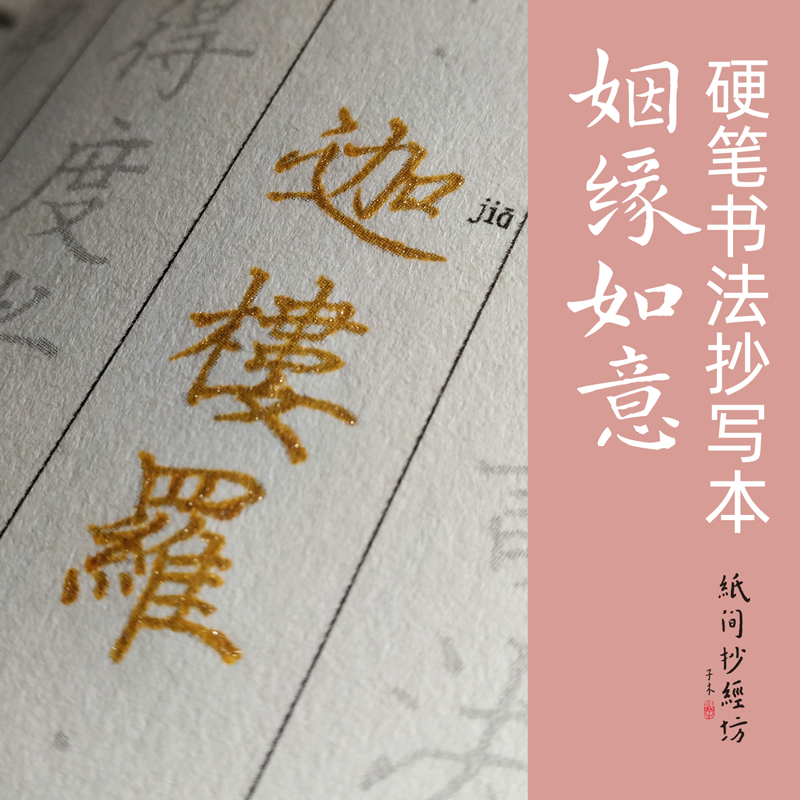 硬笔书法抄写本
姻缘如意
紙间抄經坊
子木
迦樓羅
jiā
得度